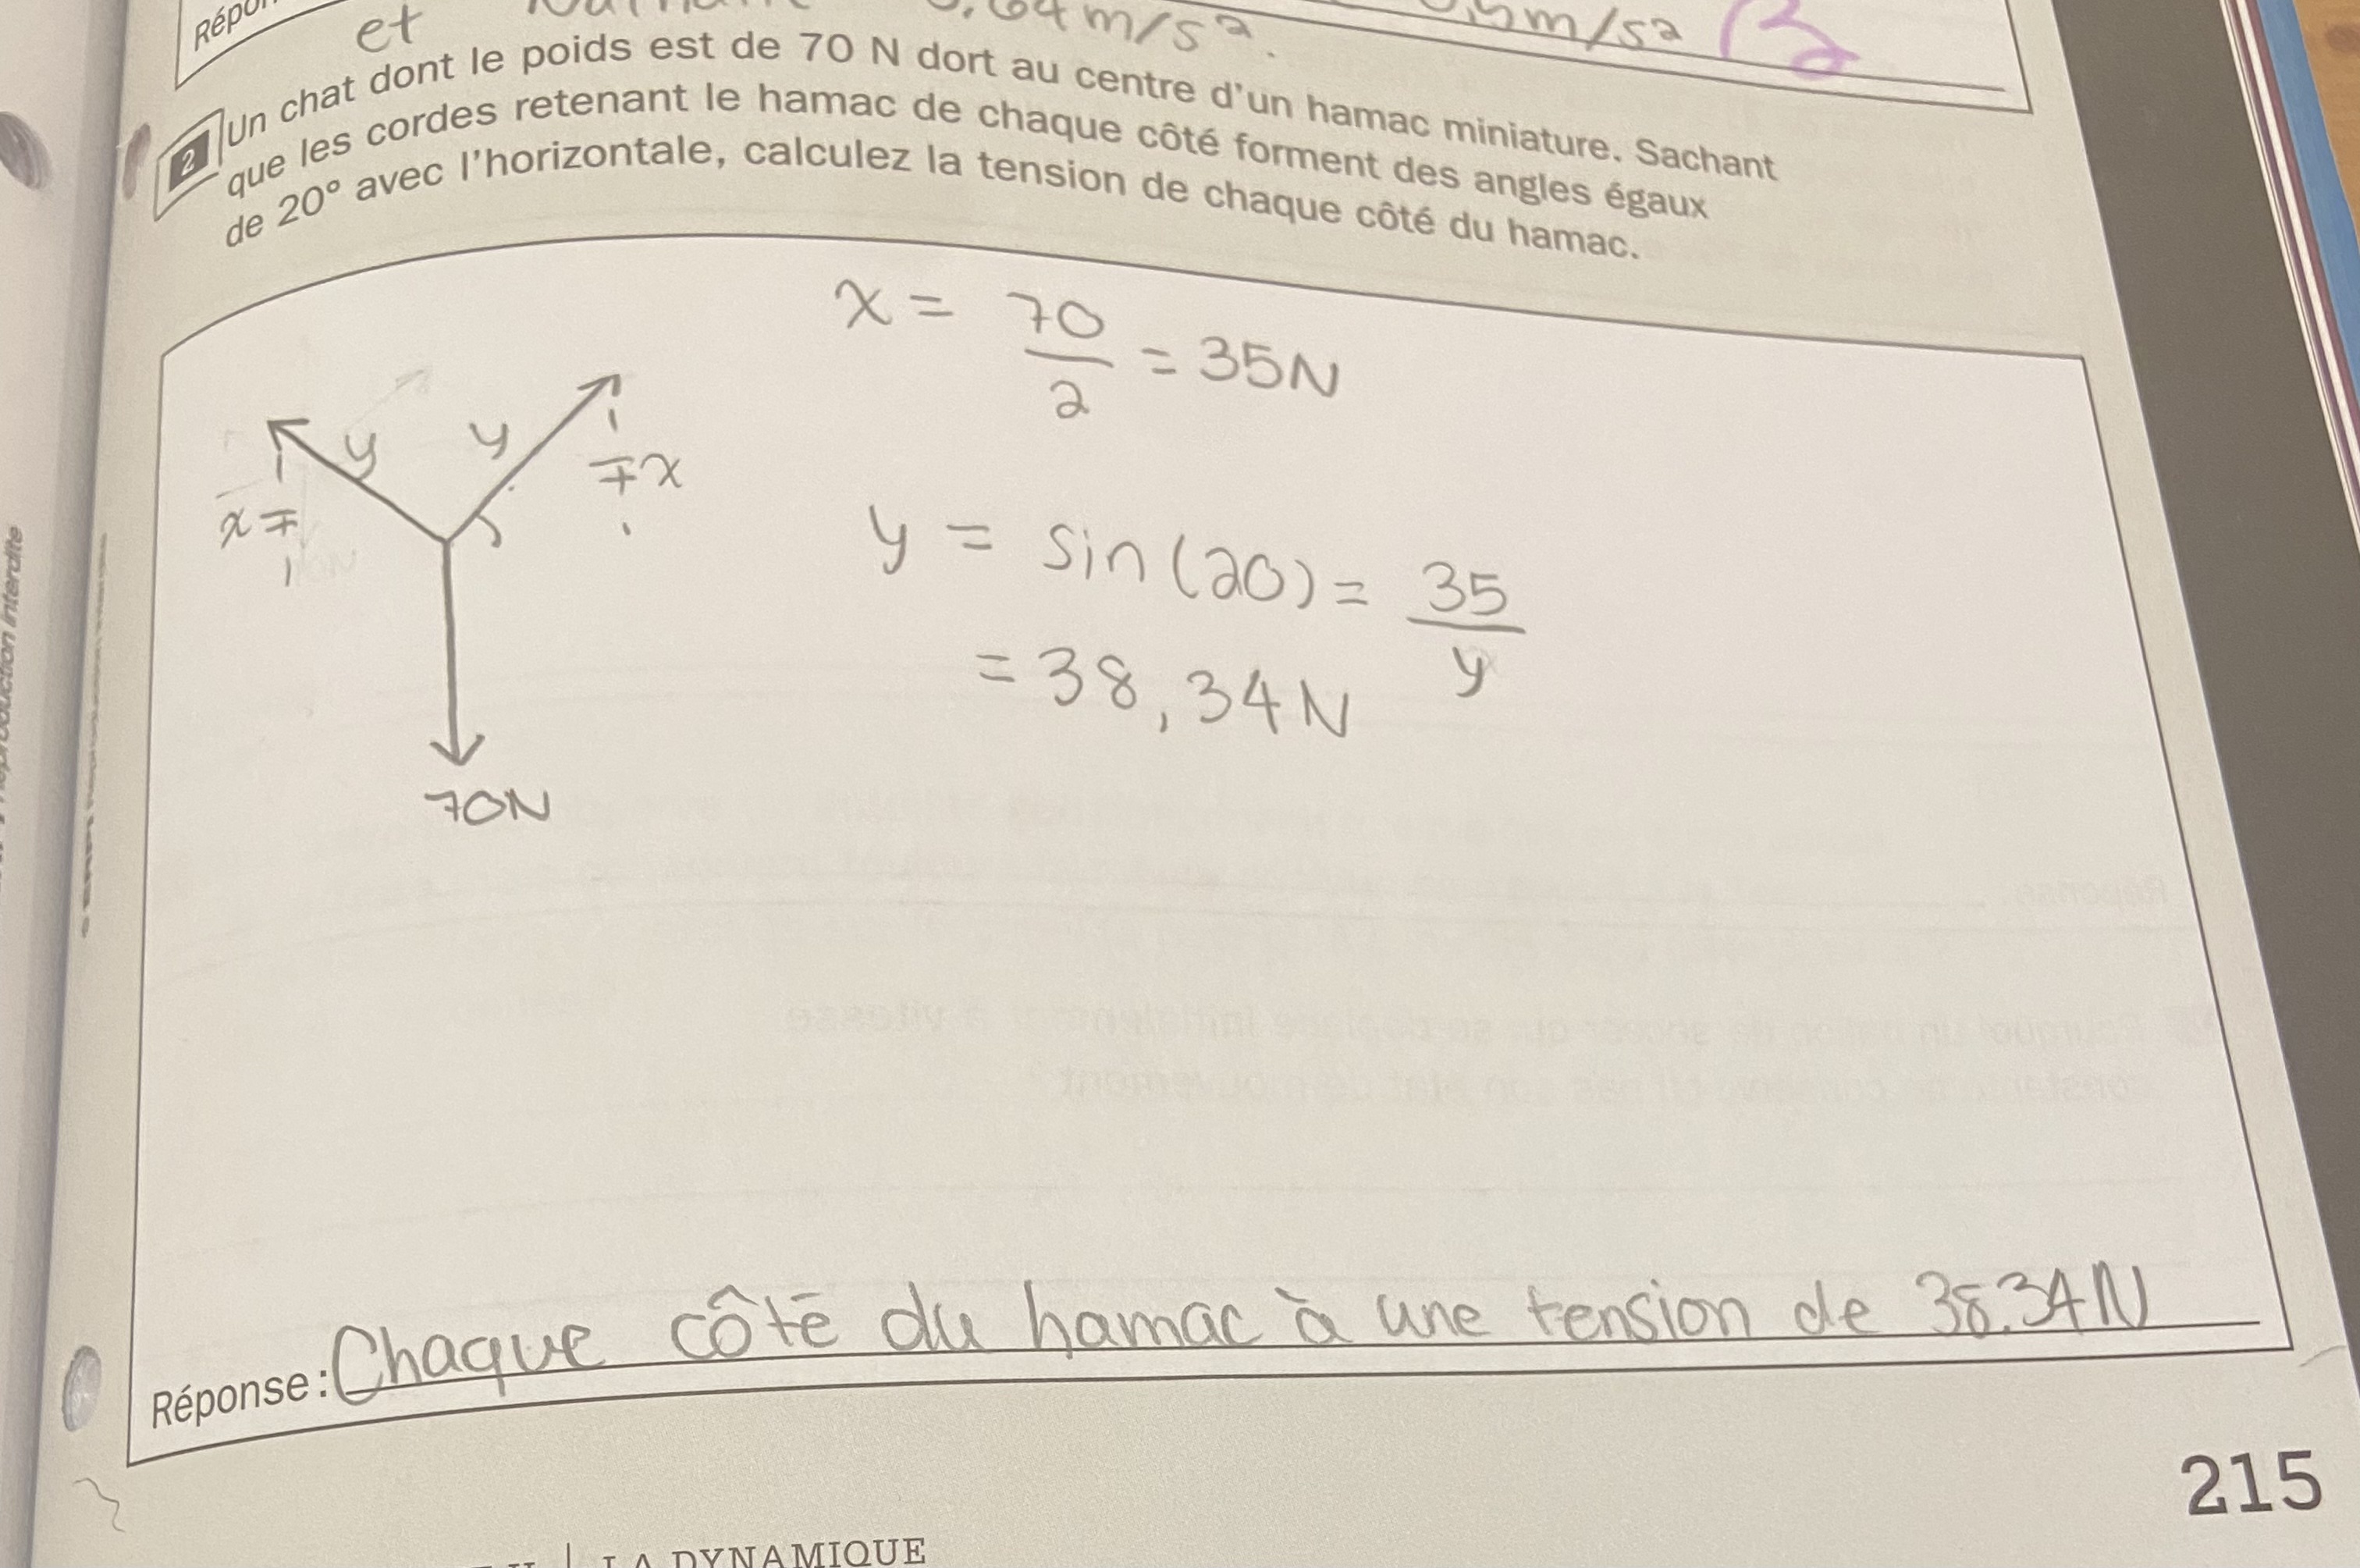 et
,64 m/s².
m/s²
2 Un chat dont le poids est de 70 N dort au centre d'un hamac miniature. Sachant
que les cordes retenant le hamac de chaque côté forment des angles égaux
de 20° avec l'horizontale, calculez la tension de chaque côté du hamac.
x = 70/2 = 35N
y y
x x
70N
y = sin(20) = 35/y
= 38,34N
Réponse: Chaque côté du hamac à une tension de 38.34N
215
LA DYNAMIQUE